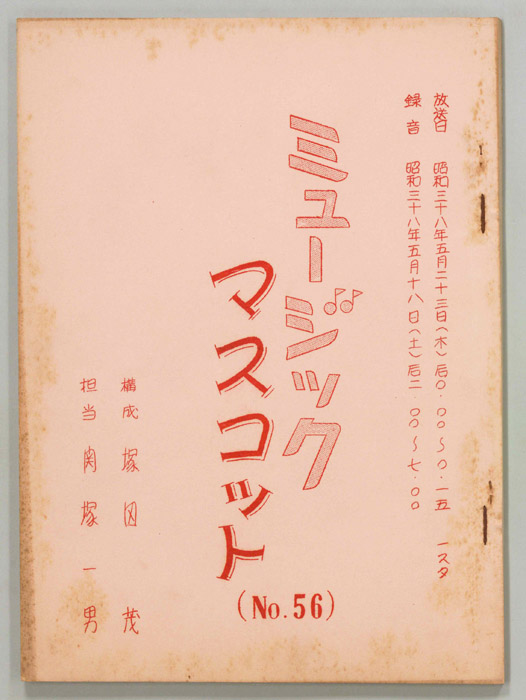 放送日 昭和三十八年五月二十三日(木)后0.00〜0.15 一スタ
録音 昭和三十八年五月十八日(土)后二.00〜七.00
ミュージック
マスコット
(No.56)
構成 塚田 茂
担当 関塚一男